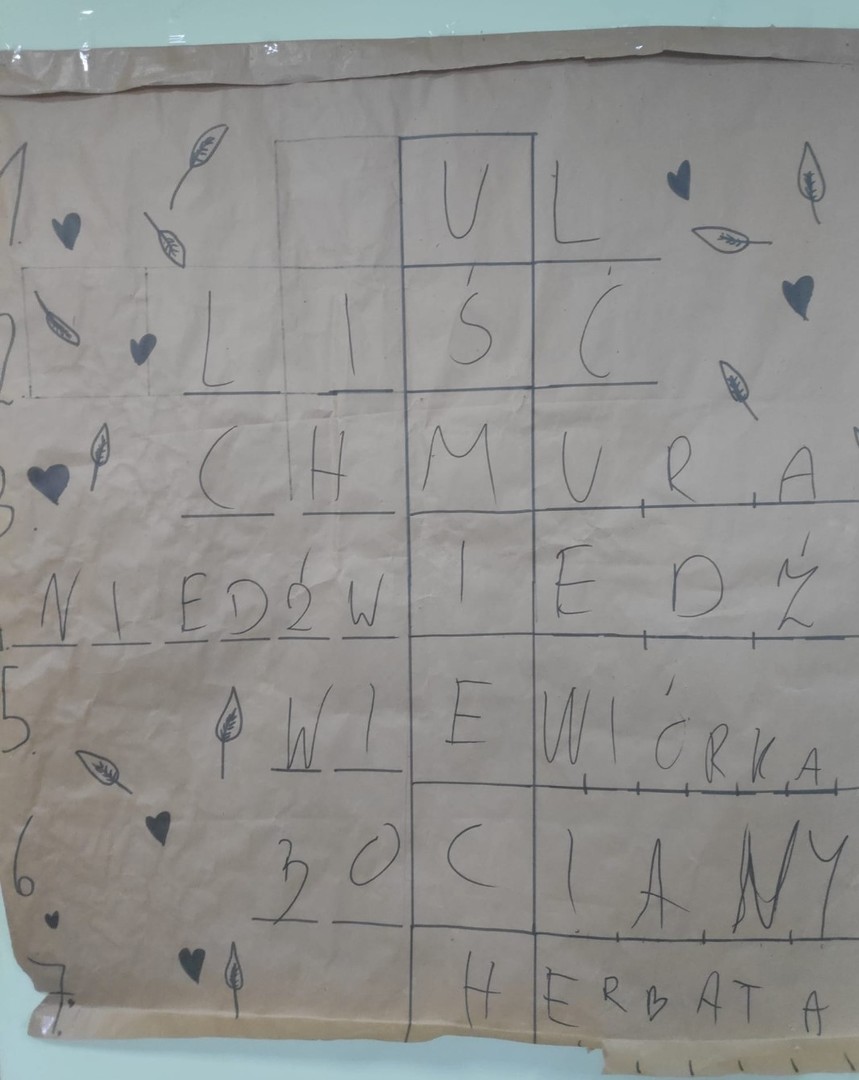 1. UL
2. LIŚĆ
3. CHMURA
NIEDŹWIEDŹ
5. WIEWIÓRKA
6 BOCIANY
7. HERBATA